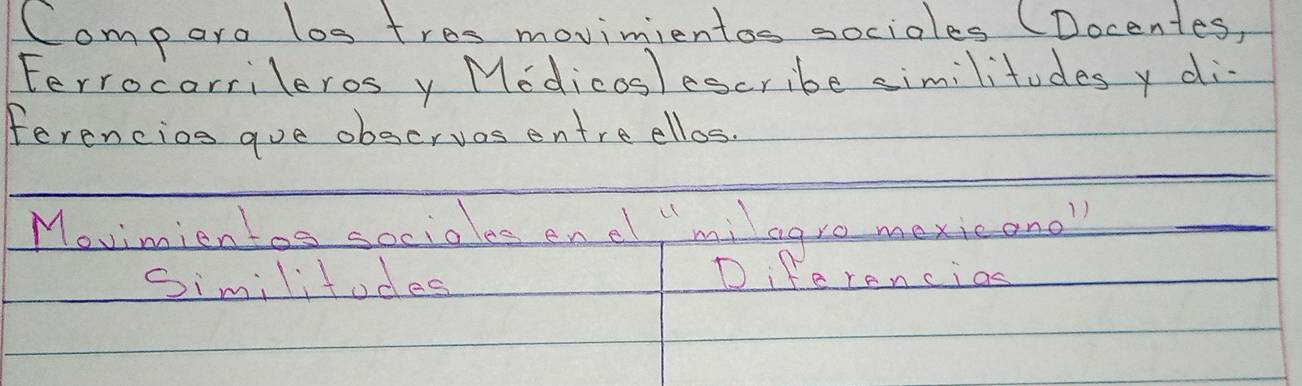 Compara los tres movimientos sociales (Docentes,
Ferrocarrileros y Médicos) escribe similitudes y di-
ferencias que observas entre ellos.
Movimientos sociales en el "milagro mexicano"
Similitudes Diferencias